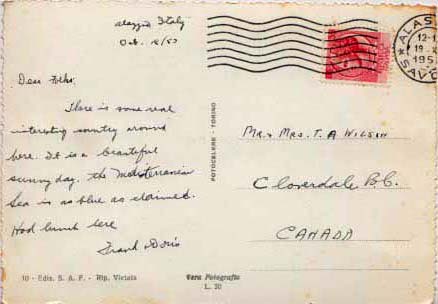 Alassio Italy
Oct. 18/57
Dear Folks:
There is some real
interesting country around
here. It is a beautiful
sunny day. the Mediterranean
Sea is as blue as claimed.
Had lunch here
Frank & Doris
Mr & Mrs. T. A WILSON
Cloverdale B.C.
CANADA
FOTOCELERE - TORINO
10 - Ediz. S. A. F. - Rip. Vietata
Vera Fotografia
L. 30
ALAS
12-1
19
195
SAVO